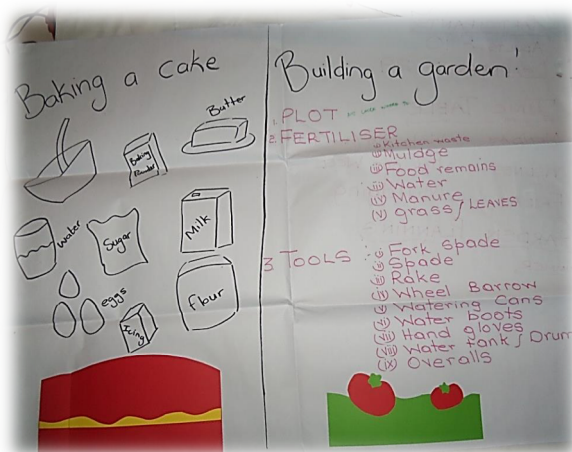 Baking a cake
Butter
Baking
Powder
Water
Sugar
Milk
eggs
Flour
Icing
Building a garden!
1. PLOT
2. FERTILISER
Kitchen waste
(i) Muldge
(ii) Food remains
(iii) Water
(iv) Manure
(v) grass/LEAVES
3 TOOLS (i) Fork spade
(ii) Spade
(iii) Rake
(iv) Wheel Barrow
(v) Watering Cans
(vi) Water boots
(vii) Hand gloves
(viii) Water tank/Drum
(ix) Overalls